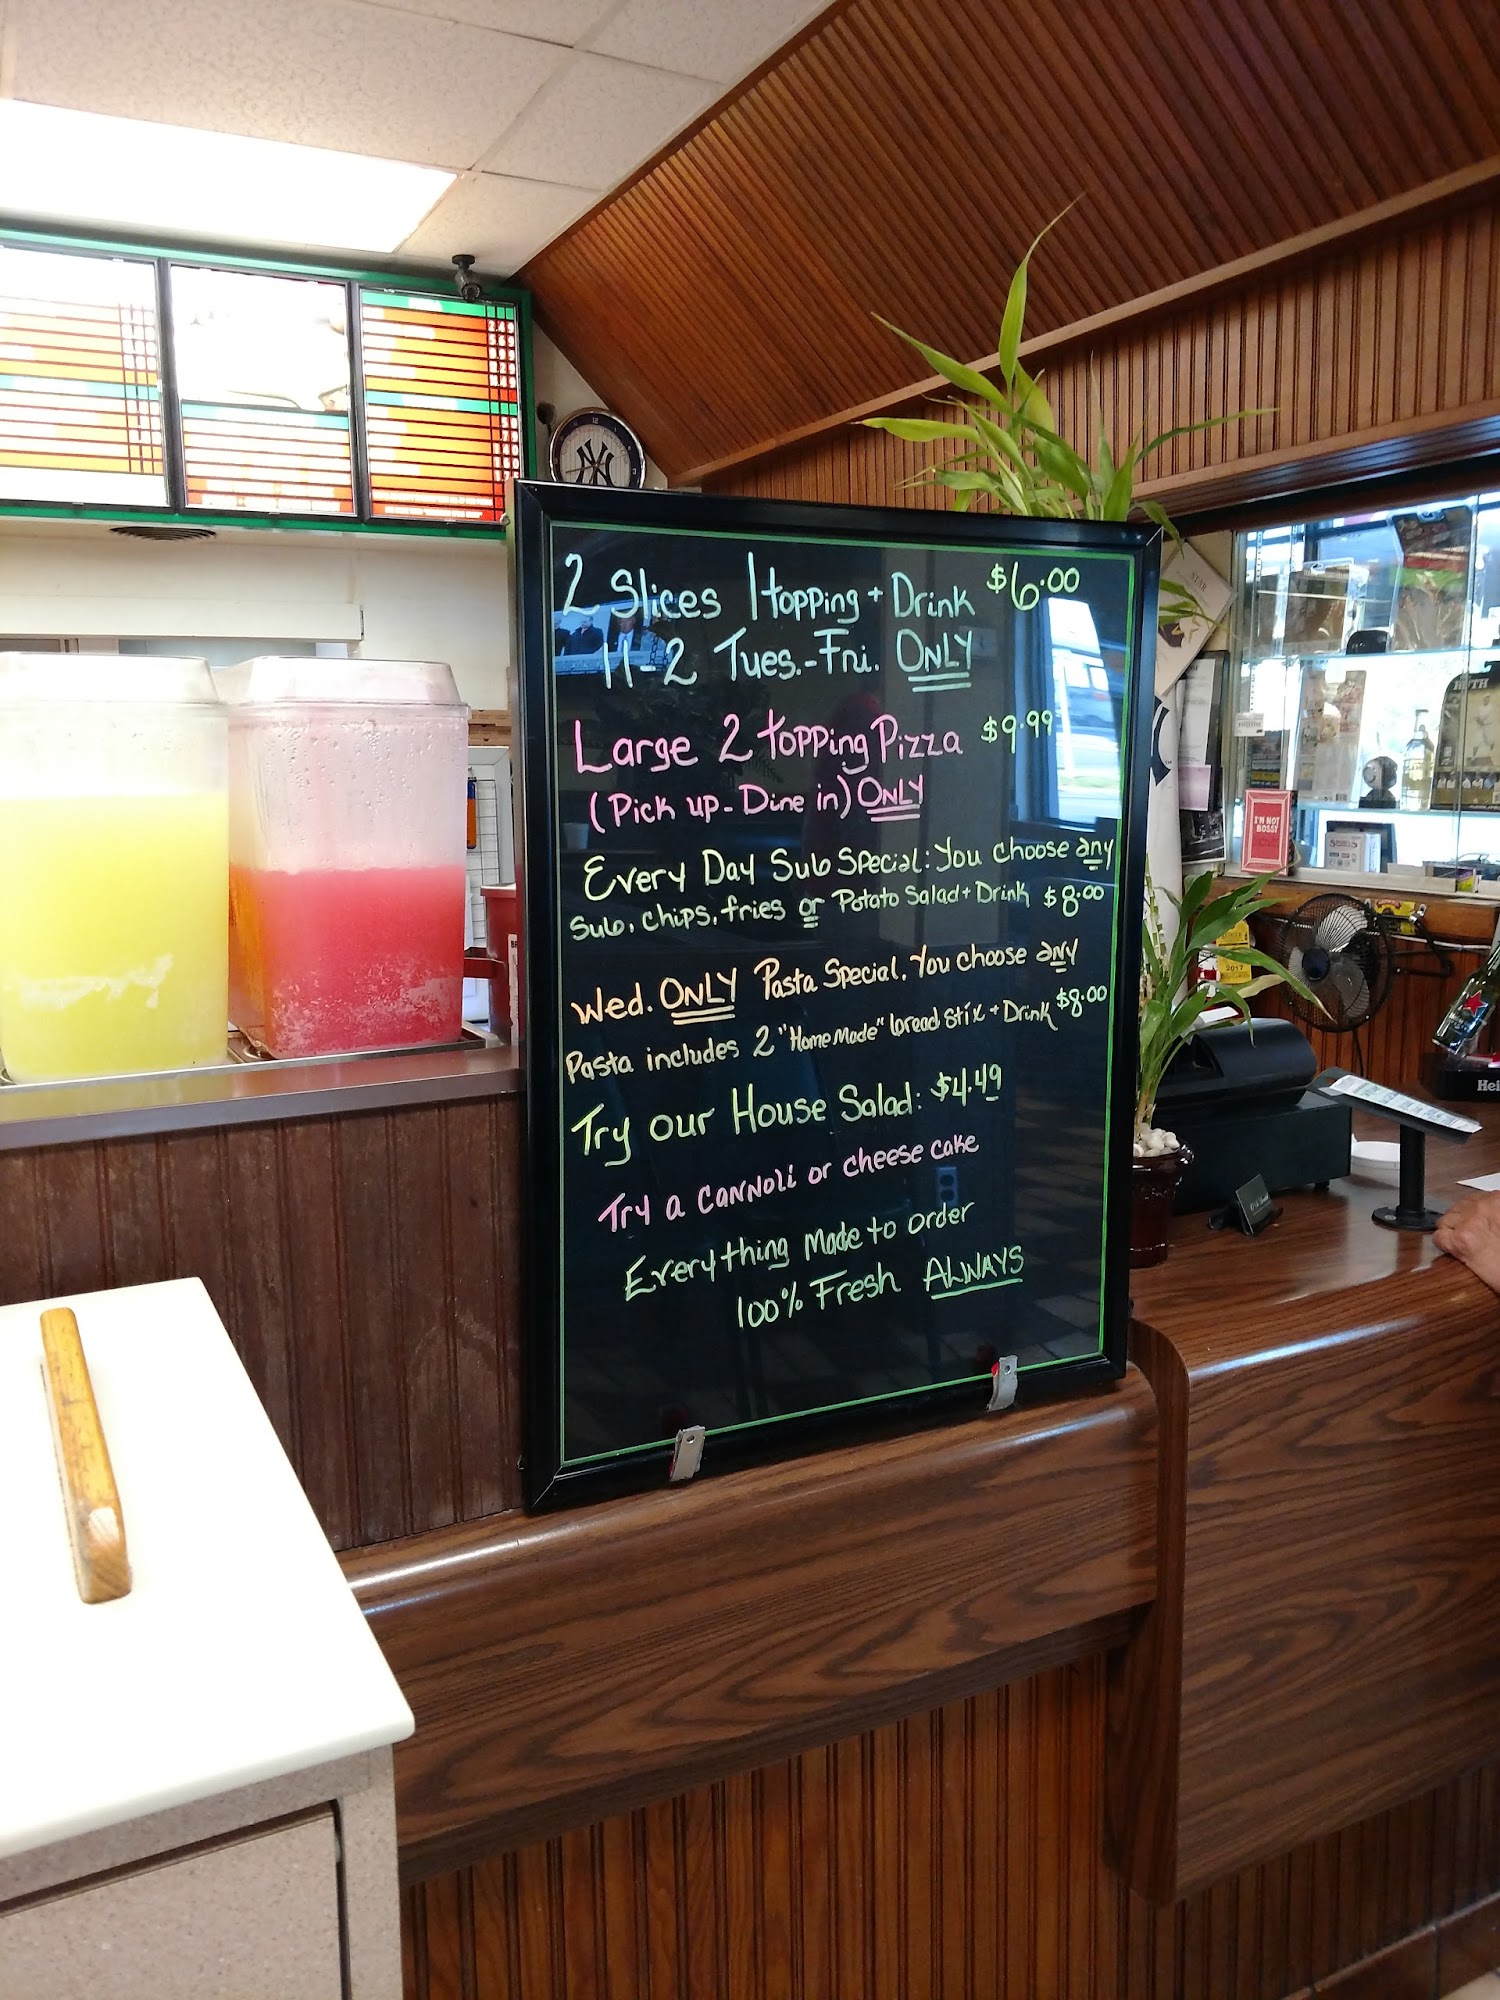 2 Slices 1 topping + Drink $6.00
11-2 Tues.-Fri. ONLY
Large 2 topping Pizza $9.99
(Pick up - Dine in) ONLY
Every Day Sub Special: You choose any
Sub, chips, fries or Potato Salad + Drink $8.00
Wed. ONLY Pasta Special. You choose any
Pasta includes 2 "Home Made" bread stix + Drink $8.00
Try our House Salad: $4.49
Try a cannoli or cheese cake
Everything Made to order
100% Fresh ALWAYS
I'M NOT
BOSSY
2017
Hei